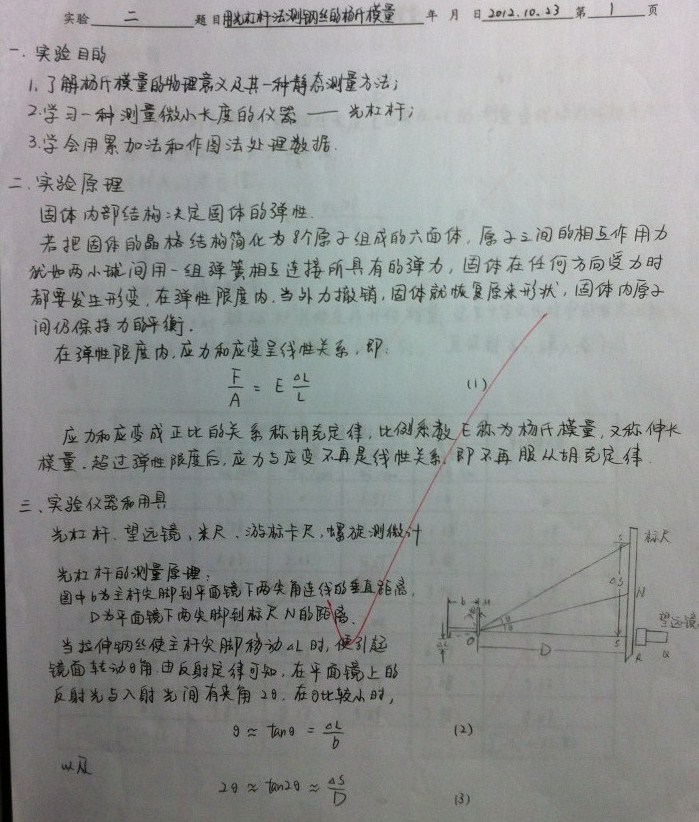 实验 二 题目 用光杠杆法测钢丝的杨氏模量 年 月 日 2012.10.23 第 1 页
一、实验目的
1.了解杨氏模量的物理意义及其一种静态测量方法;
2.学习一种测量微小长度的仪器——光杠杆;
3.学会用累加法和作图法处理数据.
二、实验原理
固体内部结构决定固体的弹性.
若把固体的晶格结构简化为8个原子组成的六面体,原子之间的相互作用力
犹如两小球间用一组弹簧相互连接所具有的弹力,固体在任何方向受力时
都要发生形变,在弹性限度内,当外力撤销,固体就恢复原来形状,固体内原子
间仍保持力的平衡.
在弹性限度内,应力和应变呈线性关系,即:
F/A = E ΔL/L (1)
应力和应变成正比的关系称胡克定律,比例系数E称为杨氏模量,又称伸长
模量.超过弹性限度后,应力与应变不再是线性关系,即不再服从胡克定律.
三、实验仪器和用具
光杠杆、望远镜、米尺、游标卡尺、螺旋测微计
光杠杆的测量原理:
图中b为主杆尖脚到平面镜下两尖角连线的垂直距离,
D为平面镜下两尖脚到标尺N的距离.
当拉伸钢丝使主杆尖脚移动ΔL时,便引起
镜面转动θ角.由反射定律可知,在平面镜上的
反射光与入射光间有夹角2θ.在θ比较小时,
θ≈tanθ = ΔL/b (2)
以及
2θ≈tan2θ≈ΔS/D (3)
标尺
ΔS
N
望远镜
b
M
O
D
ΔL
S
R
Q